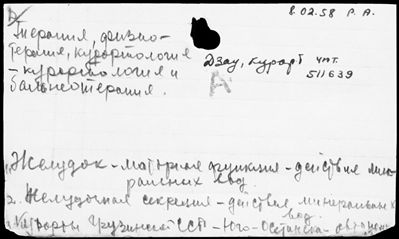 8.02.58 Р. А.
Терапия, физио-
терапия, курортология
- курортология и
бальнеотерапия.
Дзау, курорт чит.
511639
А
1. Желудок - моторная функция - действие мине-
ральных вод.
2. Желудочная секреция - действие минеральных
вод.
Курорты Грузинск. ССР - Юго-Осетинск. автоном.